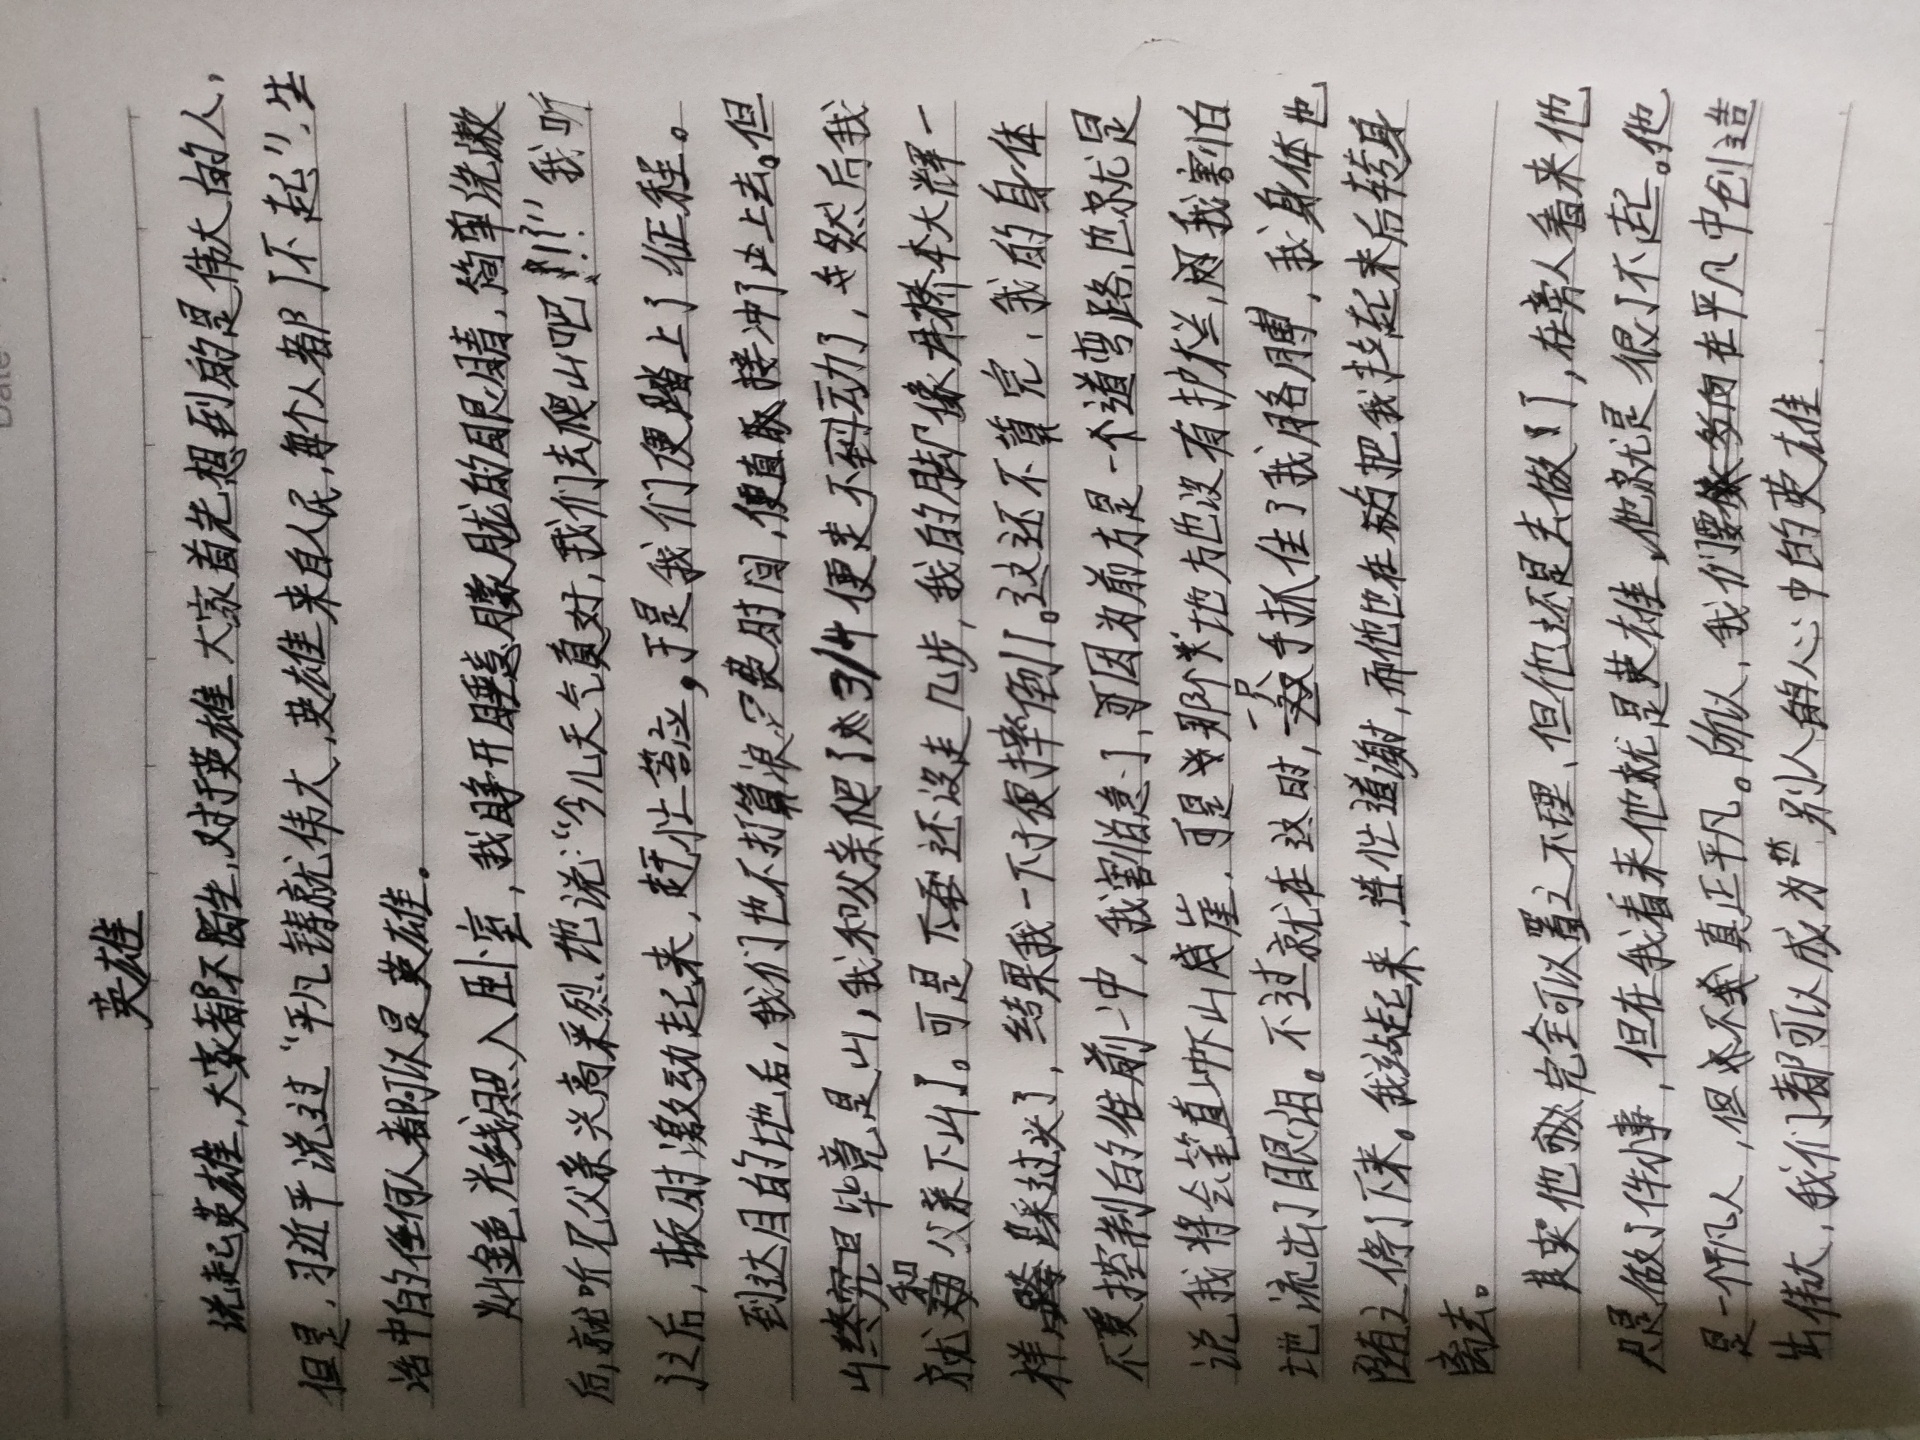 Date
英雄
说起英雄,大家都不陌生,对于英雄大家首先想到的是伟大的人,
但是,习近平说过“平凡铸就伟大,英雄来自人民,每个人都了不起”,生
活中的任何人都可以是英雄。
灿金色光线照入卧室,我睁开睡意朦胧的眼睛,简单洗漱
后,就听见父亲兴高采烈地说:“今儿天气真好,我们去爬山吧!!!”我听
了之后,顿时激动起来,赶忙答应,于是我们便踏上了征程。
到达目的地后,我们也不打算浪费时间,便直接冲了上去。但
山毕竟是山,我和父亲爬了3/4便走不动了,然后我
就和父亲下山了。可是下还没走几步,我的脚像用桥本大辉一
样踩过头了,结果我一下子便摔倒了。这还不算完,我的身体
不要控制的往前冲,我害怕急了,可因为前方是一个道弯路,也就是
说我将会笔直冲下山底崖,可是那个地方也没有护栏,我害怕
地流出了眼泪。不过就在这时,一只手抓住了我胳膊,我身体也
随之停了下来。我站起来,连忙道谢,而他也在把我拉起来后转身
离去。
其实他完全可以置之不理,但他还是去做了,在旁人看来他
只是做了件小事,但在我看来他就是英雄,他就是很了不起。他
是一个平凡人,但不真正平凡。所以,我们要在平凡中创造
出伟大,我们都可以成为别人的心中的英雄